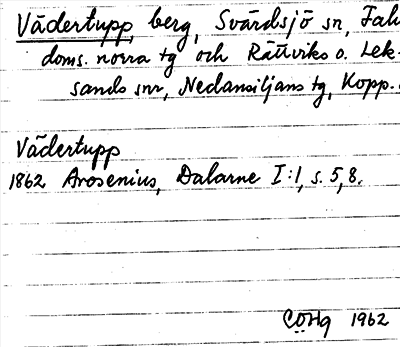 Vädertupp, berg, Svärdsjö sn, Falu
doms. norra tg och Rättviks o. Lek-
sands snr, Nedansiljans tg, Kopp.
Vädertupp
1862 Arosenius, Dalarne I:1, s. 5, 8.
1962